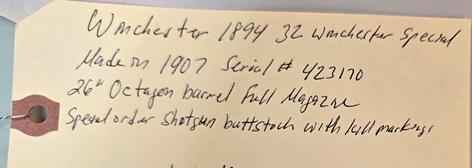 Winchester 1894 32 Winchester Special
Made in 1907 Serial # 423170
26" Octagon barrel Full Magazine
Special order Shotgun buttstock with kill markings